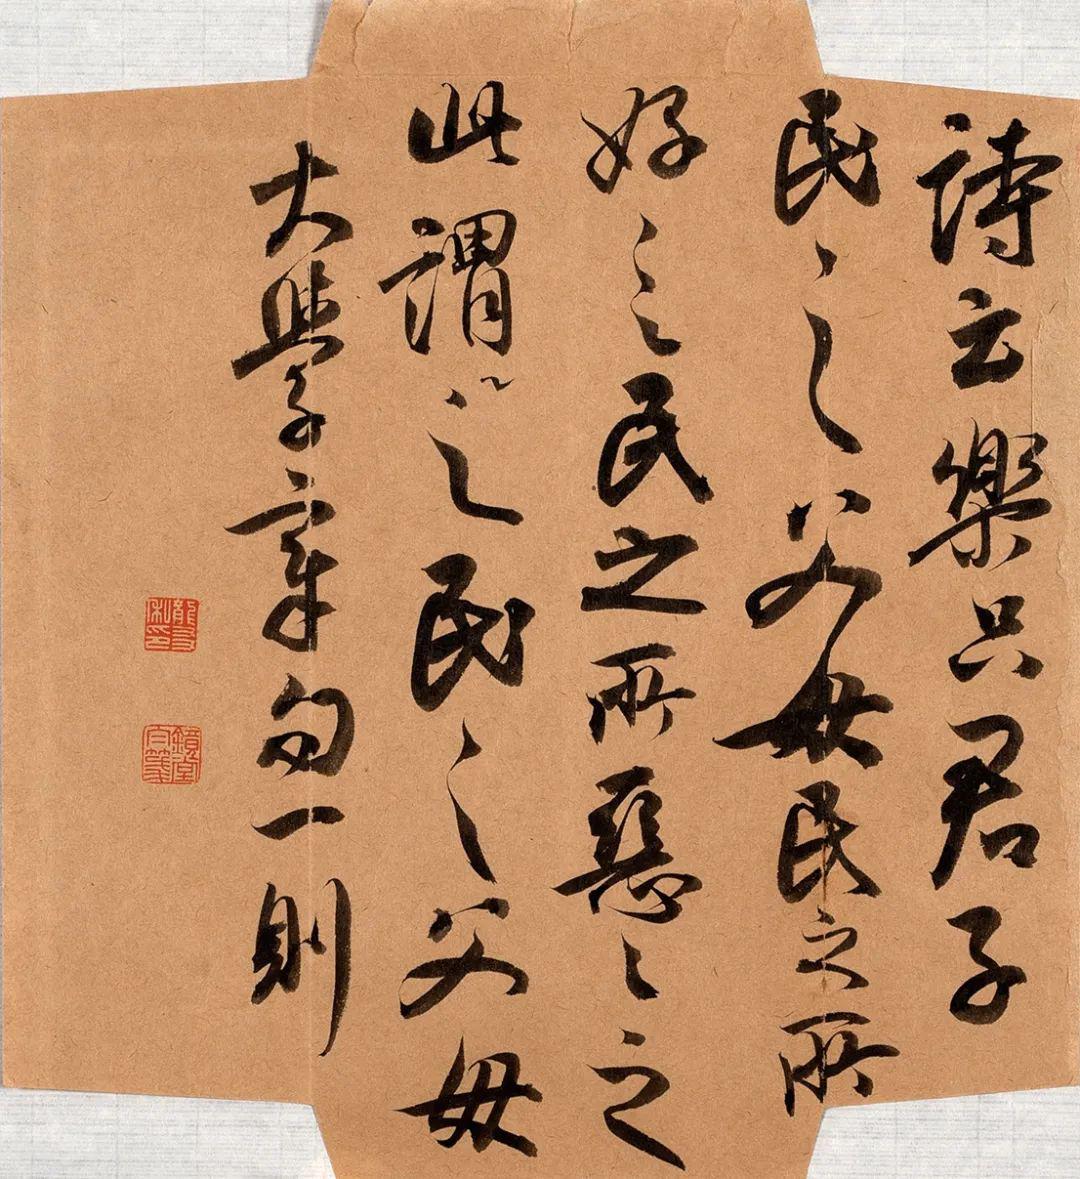 詩云樂只君子
民之父母民之所
好〻之民之所惡〻之
此謂之民之父母
大學章句一則